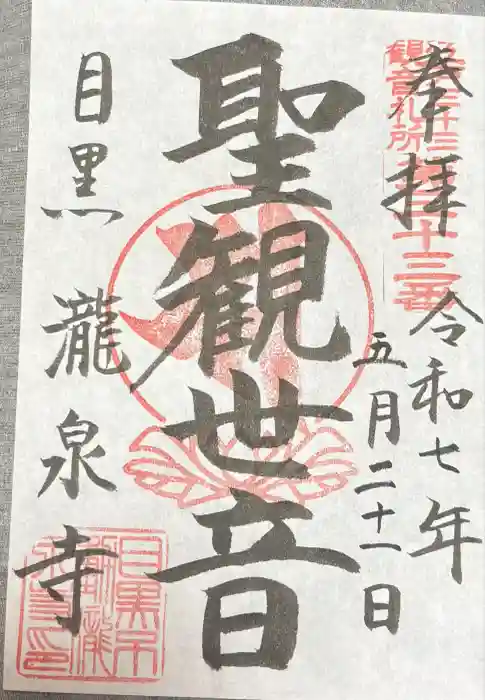 奉拝
令和七年
五月二十一日
聖観世音
目黒
瀧泉寺
観音札所
三十三番